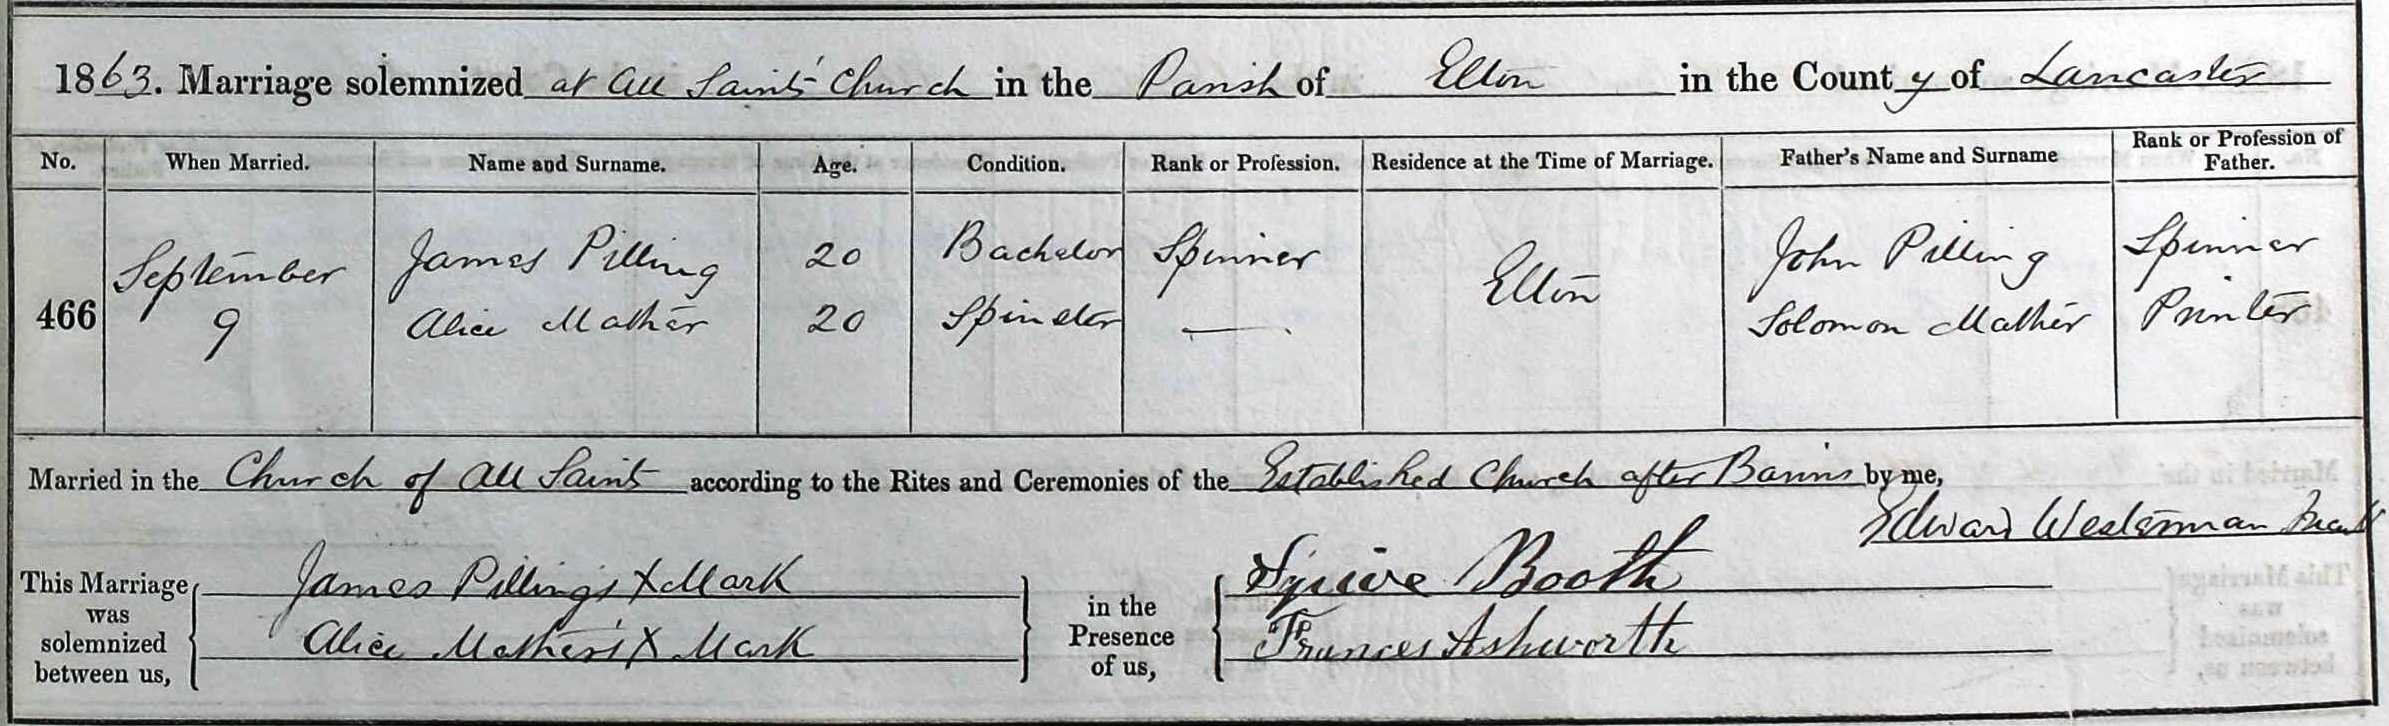 1863. Marriage solemnized at All Saints' Church in the Parish of Elton in the County of Lancaster
No. When Married. Name and Surname. Age. Condition. Rank or Profession. Residence at the Time of Marriage. Father's Name and Surname Rank or Profession of Father.
466 September 9
James Pilling 20 Bachelor Spinner Elton John Pilling Spinner
Alice Mather 20 Spinster — Solomon Mather Printer
Married in the Church of All Saints according to the Rites and Ceremonies of the Established Church after Banns by me,
Edward Westerman
This Marriage was solemnized between us,
James Pilling's X Mark
Alice Mather's X Mark
in the Presence of us,
Squire Booth
Frances Ashworth